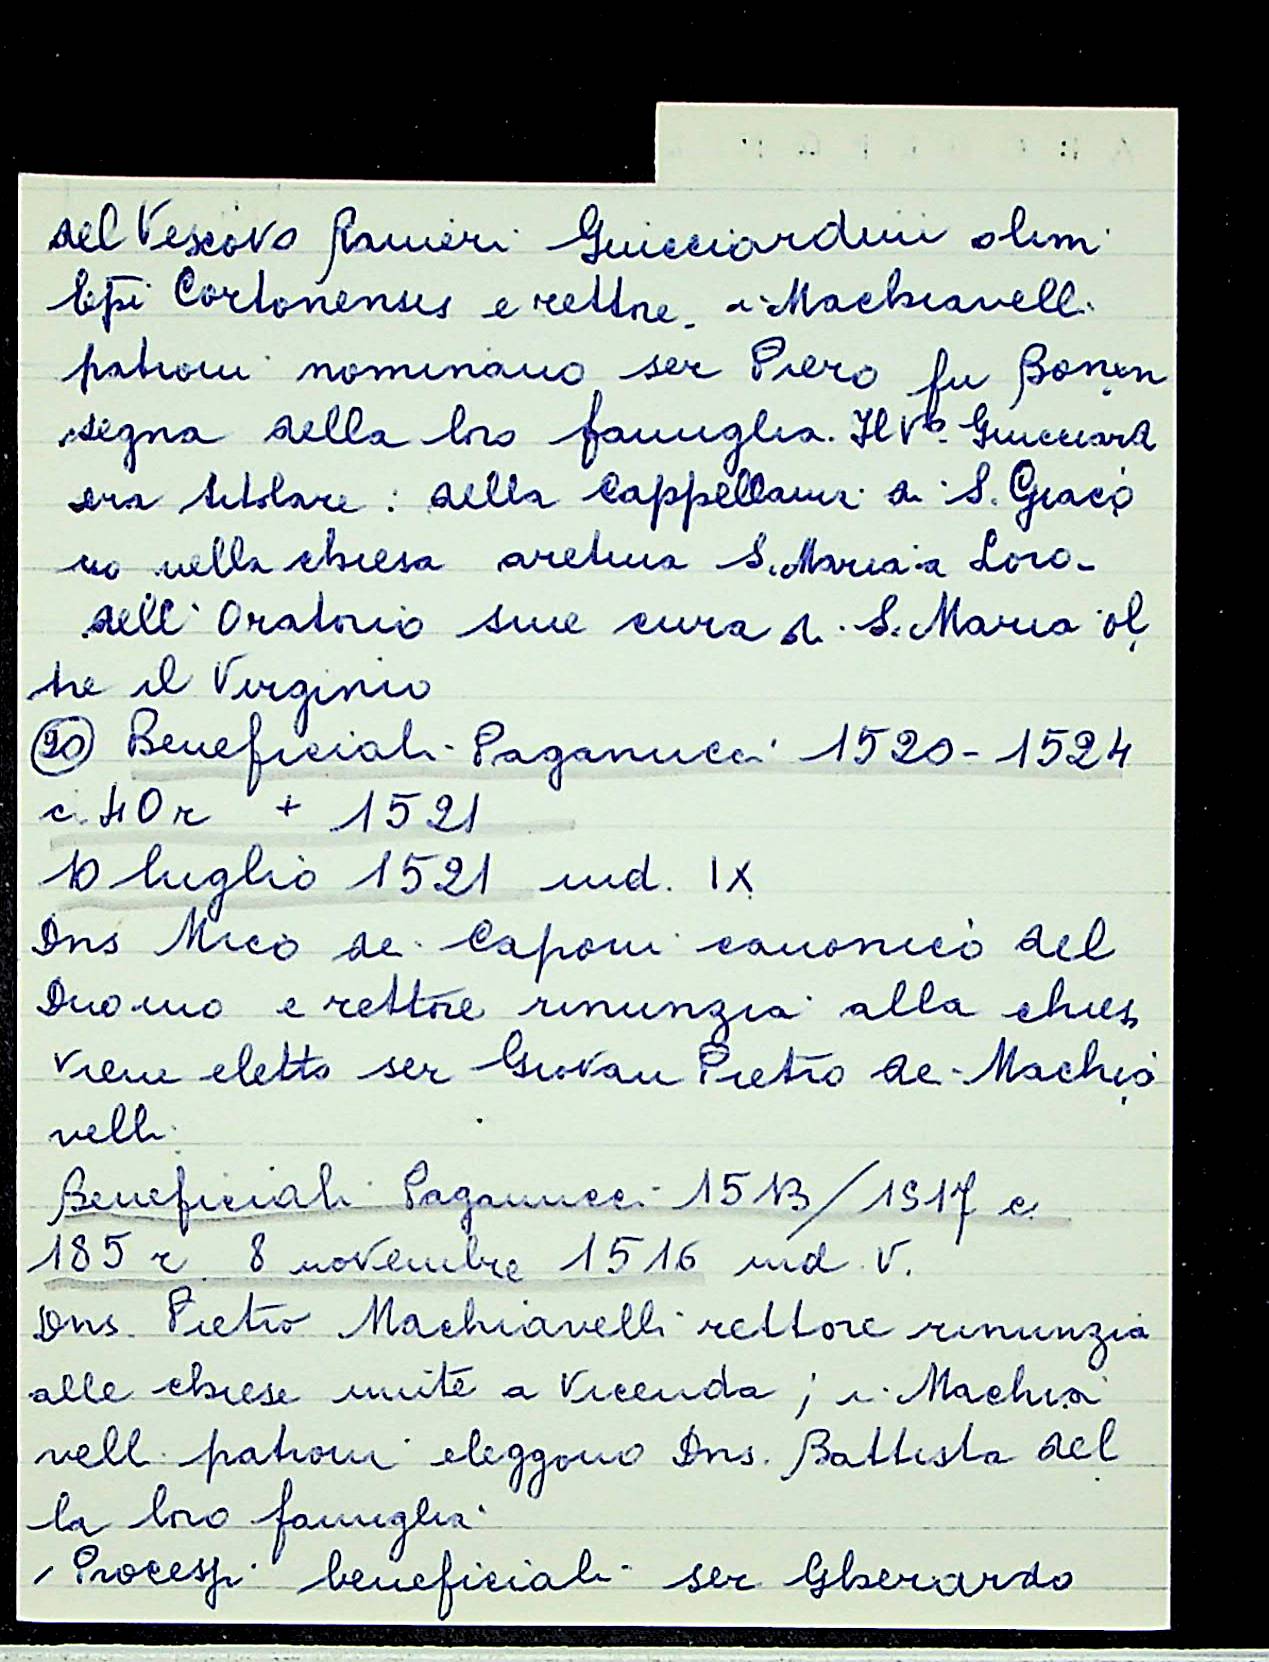 del Vescovo Ranieri Guicciardini olim
Epi Cortonensis e rettore. i Machiavelli
patroni nominano ser Piero fu Bonin
segna della loro famiglia. Il Vo. Guicciard
era titolare: della Cappellania di S. Giaco
mo nella chiesa aretina S. Maria a Loro-
dell'Oratorio sine cura di S. Maria ol
tre il Virginio
20 Beneficiali Paganucci 1520-1524
c. 40 r + 1521
10 luglio 1521 ind. IX
Dns Mico de Caponi canonico del
Duomo e rettore rinunzia alla chies
viene eletto ser Giovan Pietro de Machia
velli
Beneficiali Paganucci 1513/1517 c.
185 r 8 novembre 1516 ind. V.
Dns. Pietro Machiavelli rettore rinunzia
alle chiese unite a vicenda; i Machia
velli patroni eleggono Dns. Battista del
la loro famiglia
Processi beneficiali ser Gherardo